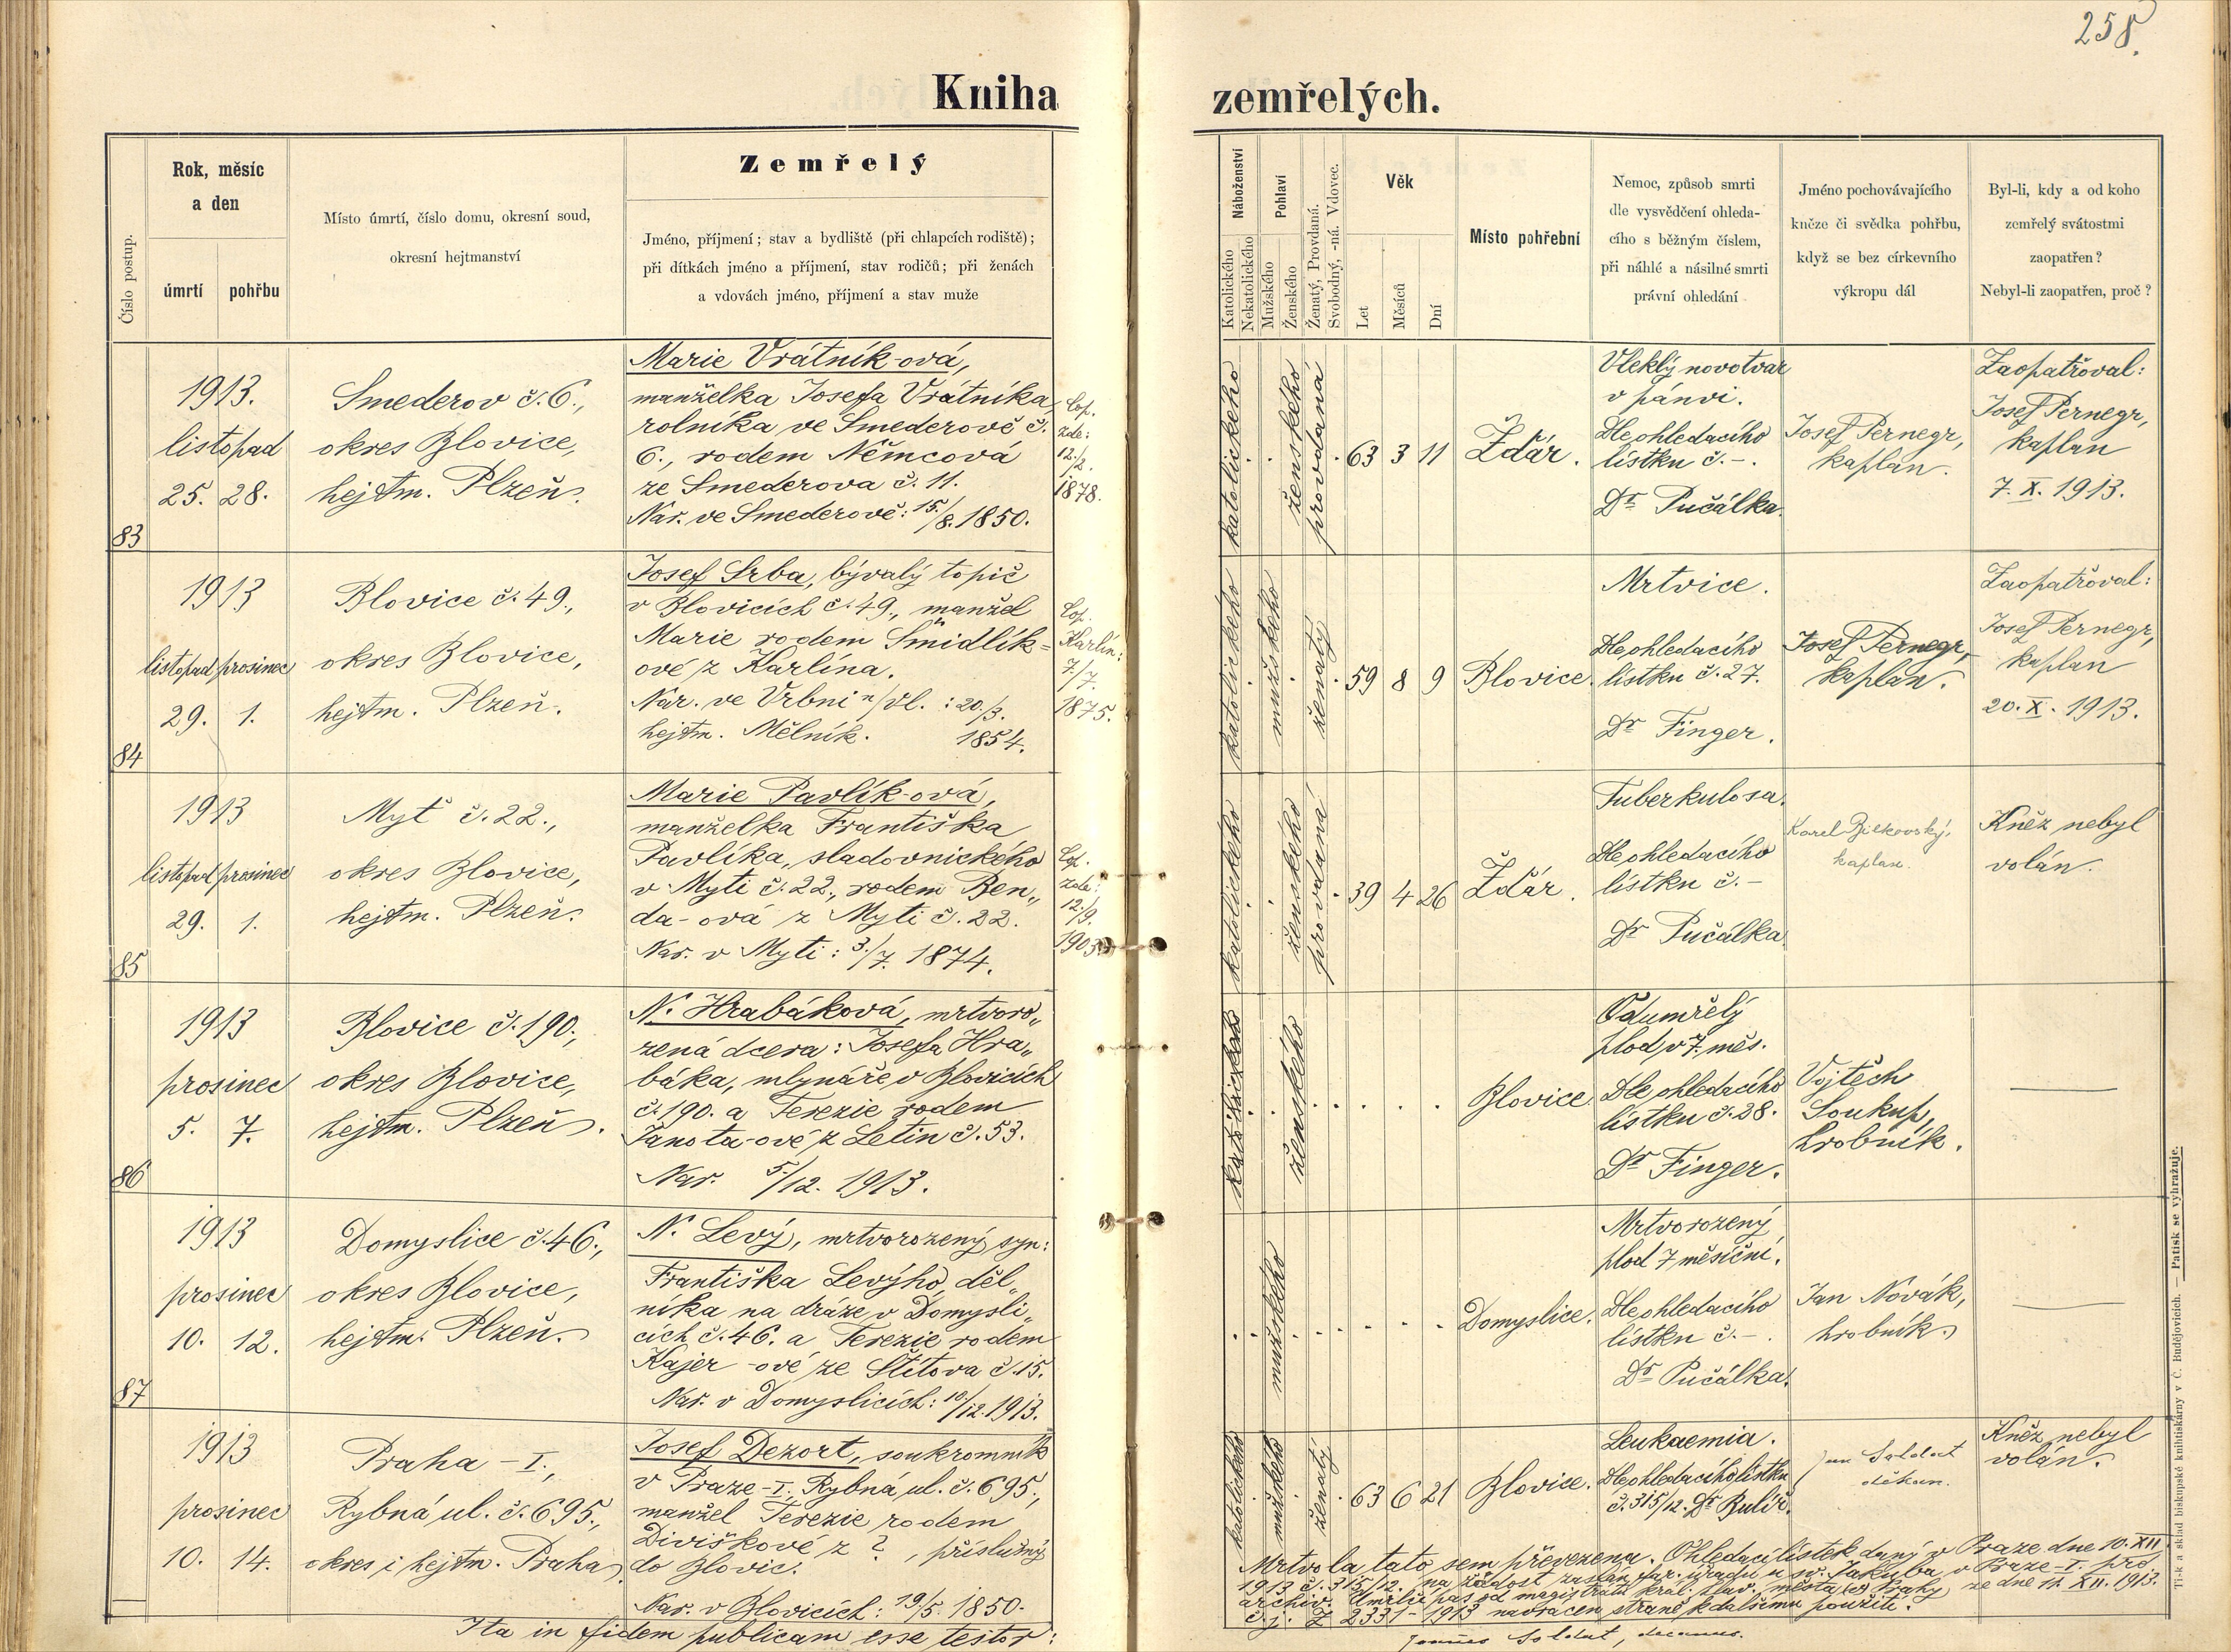 258.
Kniha zemřelých.
Číslo postup.
Rok, měsíc
a den
úmrtí
pohřbu
Místo úmrtí, číslo domu, okresní soud,
okresní hejtmanství
Zemřelý
Jméno, příjmení; stav a bydliště (při chlapcích rodiště);
při dítkách jméno a příjmení, stav rodičů; při ženách
a vdovách jméno, příjmení a stav muže
Náboženství
Katolického
Nekatolického
Pohlaví
Mužského
Ženského
Ženatý, Provdaná.
Svobodný, -ná. Vdovec.
Věk
Let
Měsíců
Dní
Místo pohřební
Nemoc, způsob smrti
dle vysvědčení ohleda-
cího s běžným číslem,
při náhlé a násilné smrti
právní ohledání
Jméno pochovávajícího
kněze či svědka pohřbu,
když se bez církevního
výkropu dál
Byl-li, kdy a od koho
zemřelý svátostmi
zaopatřen?
Nebyl-li zaopatřen, proč?
83
1913.
listopad
25. 28.
Smederov č. 6.,
okres Blovice,
hejtm. Plzeň.
Marie Vrátník-ová,
manželka Josefa Vrátníka,
rolníka ve Smederově č.
6., rodem Němcová
ze Smederova č. 11.
Nar. ve Smederově: 15./8. 1850.
Cop.
zde:
12./2.
1878.
katolického
ženského
provdaná
63 3 11
Žďár.
Vleklý novotvar
v pánvi.
Dle ohledacího
lístku č. -.
Dr Pučálka.
Josef Pernegr,
kaplan.
Zaopatřoval:
Josef Pernegr,
kaplan
7. X. 1913.
84
1913
listopad prosinec
29. 1.
Blovice č. 49.,
okres Blovice,
hejtm. Plzeň.
Josef Srba, bývalý topič
v Blovicích č. 49., manžel
Marie rodem Šmidlík=
ové z Karlína.
Nar. ve Vrbni n/Vl.: 20./3.
hejtm. Mělník. 1854.
Cop.
Karlín:
7./7.
1875.
katolického
mužského
ženatý
59 8 9
Blovice.
Mrtvice.
Dle ohledacího
lístku č. 27.
Dr Finger.
Josef Pernegr,
kaplan.
Zaopatřoval:
Josef Pernegr,
kaplan
20. X. 1913.
85
1913
listopad prosinec
29. 1.
Myť č. 22.,
okres Blovice,
hejtm. Plzeň.
Marie Pavlík-ová,
manželka Františka
Pavlíka, sladovnického
v Myti č. 22., rodem Ben„
da-ová z Myti č. 22.
Nar. v Myti: 3./7. 1874.
Cop.
zde:
12./9.
1903.
katolického
ženského
provdaná
39 4 26
Žďár.
Tuberkulosa.
Dle ohledacího
lístku č. -
Dr Pučálka.
Karel
kaplan.
Kněz nebyl
volán.
86
1913
prosinec
5. 7.
Blovice č. 190.,
okres Blovice,
hejtm. Plzeň.
N. Hrabáková, mrtvoro„
zená dcera: Josefa Hra„
báka, mlynáře v Blovicích
č. 190. a Terezie rodem
Janota-ové z Letin č. 53.
Nar. 5./12. 1913.
katolického
ženského
Blovice.
Odumřelý
plod v 7. měs.
Dle ohledacího
lístku č. 28.
Dr Finger.
Vojtěch
Soukup,
hrobník.
87
1913
prosinec
10. 12.
Domyslice č. 46.,
okres Blovice,
hejtm. Plzeň.
N. Levý, mrtvorozený syn:
Františka Levýho, děl„
níka na dráze v Domysli„
cích č. 46. a Terezie rodem
Kajer-ové ze Štítova č. 15.
Nar. v Domyslicích: 10./12. 1913.
mužského
Domyslice.
Mrtvorozený
plod 7 měsíční.
Dle ohledacího
lístku č. -.
Dr Pučálka.
Jan Novák,
hrobník.
1913
prosinec
10. 14.
Praha - I.,
Rybná ul. č. 695.,
okres i hejtm. Praha.
Josef Dezort, soukromník
v Praze-I. Rybná ul. č. 695.,
manžel Terezie rodem
Diviškové z ?, příslušný
do Blovic.
Nar. v Blovicích: 19./5. 1850.
katolického
mužského
ženatý
63 6 21
Blovice.
Leukaemia.
Dle ohledacího lístku
č. 315/12. Dr Bulíř.
Jan Soldat
děkan.
Kněz nebyl
volán.
Mrtvola tato sem převezena. Ohledací lístek daný v Praze dne 10. XII.
1913 č. 315/12. na žádost zaslán far. úřadu u sv. Jakuba v Praze-I. pro
archiv. Umrlčí pas od magistrátu král. hlav. města Prahy ze dne 12. XII. 1913.
č. j. Z 2331-1913 navrácen straně k dalšímu použití.
Ita in fidem publicam esse testor:
Joannes Soldat, decanus.
Tisk a sklad biskupské knihtiskárny v Č. Budějovicích. — Patisk se vyhražuje.